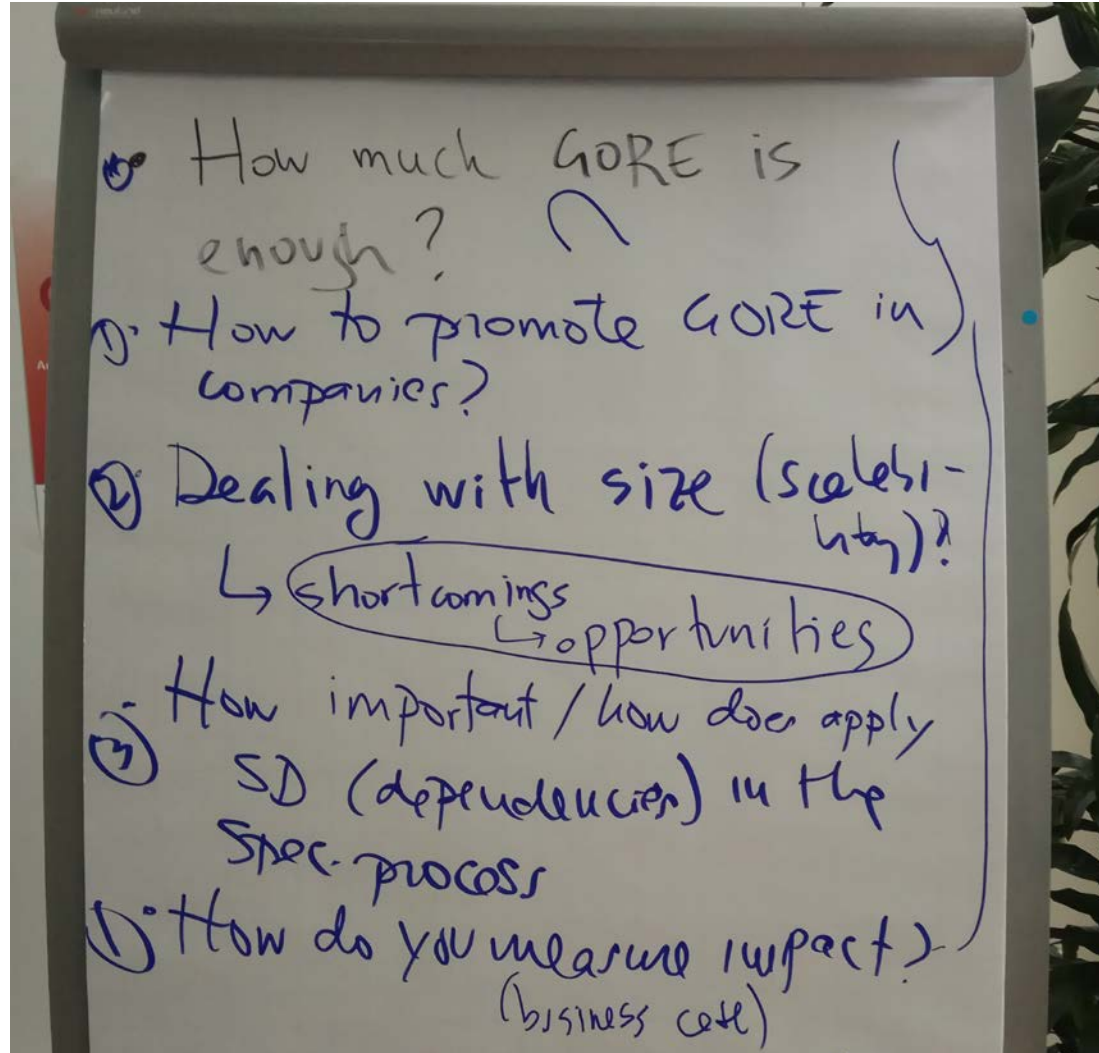 • How much GORE is
enough?
1) • How to promote GORE in
companies?
2) Dealing with size (scalabi-
lity)?
↳ shortcomings
↳ opportunities
3) How important / how does apply
SD (dependencies) in the
Spec. process
1) • How do you measure impact?
(business case)